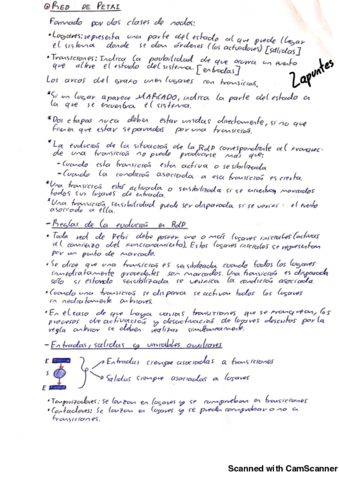 RED DE PETRI
Formado por dos clases de nodos:
• Lugares: representa una parte del estado al que puede llegar
el sistema donde se dan órdenes (los actuadores) [salidas]
• Transiciones: Indica la posibilidad de que ocurra un evento
que altere el estado del sistema. [entradas]
Los arcos del grafo unen lugares con transición.
2 apuntes
* Si un lugar aparece MARCADO, indica la parte del estado a
la que se encuentra el sistema.
* Dos etapas nunca deben estar unidas directamente, si no que
tienen que estar separadas por una transición.
* La evolución de la situación de la RdP correspondiente al franqueo
de una transición no puede producirse más que:
- Cuando esta transición está activa o sensibilizada
- Cuando la condición asociada a esa transición es cierta.
* Una transición está activada o sensibilizada si se encuentran marcados
todos sus lugares de entrada.
* Una transición sensibilizada puede ser disparada si se verifica el evento
asociado a ella.
- Reglas de la evolución en RdP
• Toda red de Petri debe poseer uno o más lugares iniciales (activos
al comienzo del funcionamiento). Estos lugares iniciales se representan
por un punto de marcado.
• Se dice que una transición es sensibilizada cuando todos los lugares
inmediatamente precedentes son marcados. Una transición es disparada
sólo si estando sensibilizada se verifica la condición asociada
• Cuando una transición se dispara se activan todos los lugares
inmediatamente anteriores.
• En el caso de que haya varias transiciones que se franquean, los
procesos de activación y desactivación de lugares descritos por la
regla anterior se deben realizar simultáneamente.
- Entradas, salidas y variables auxiliares
E
Entradas siempre asociadas a transiciones
S
Salidas siempre asociadas a lugares
E
• Temporizadores: Se lanzan en lugares y se comprueban en transiciones
• Contadores: Se lanzan en lugares y se pueden comprobar o no a
transiciones.
Scanned with CamScanner